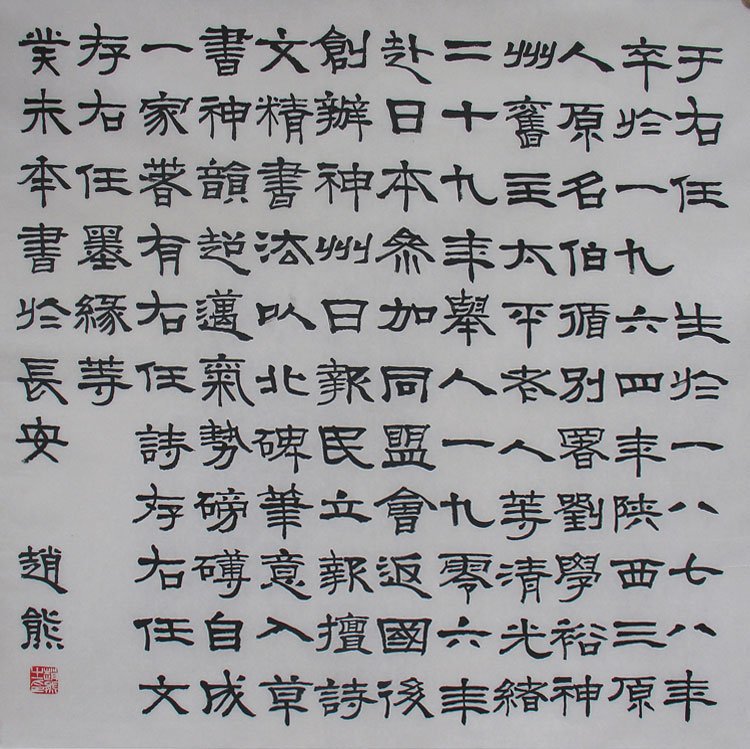 于右任 生於一八七八年
卒於一九六四年陝西三原
人原名伯循別署劉學裕神
州舊主太平老人等清光緒
二十九年舉人一九零六年
赴日本參加同盟會返國後
創辦神州日報民立報擅詩
文精書法以北碑筆意入草
書神韻超邁氣勢磅礡自成
一家著有右任詩存右任文
存右任墨緣等
癸未書於長安 趙熊